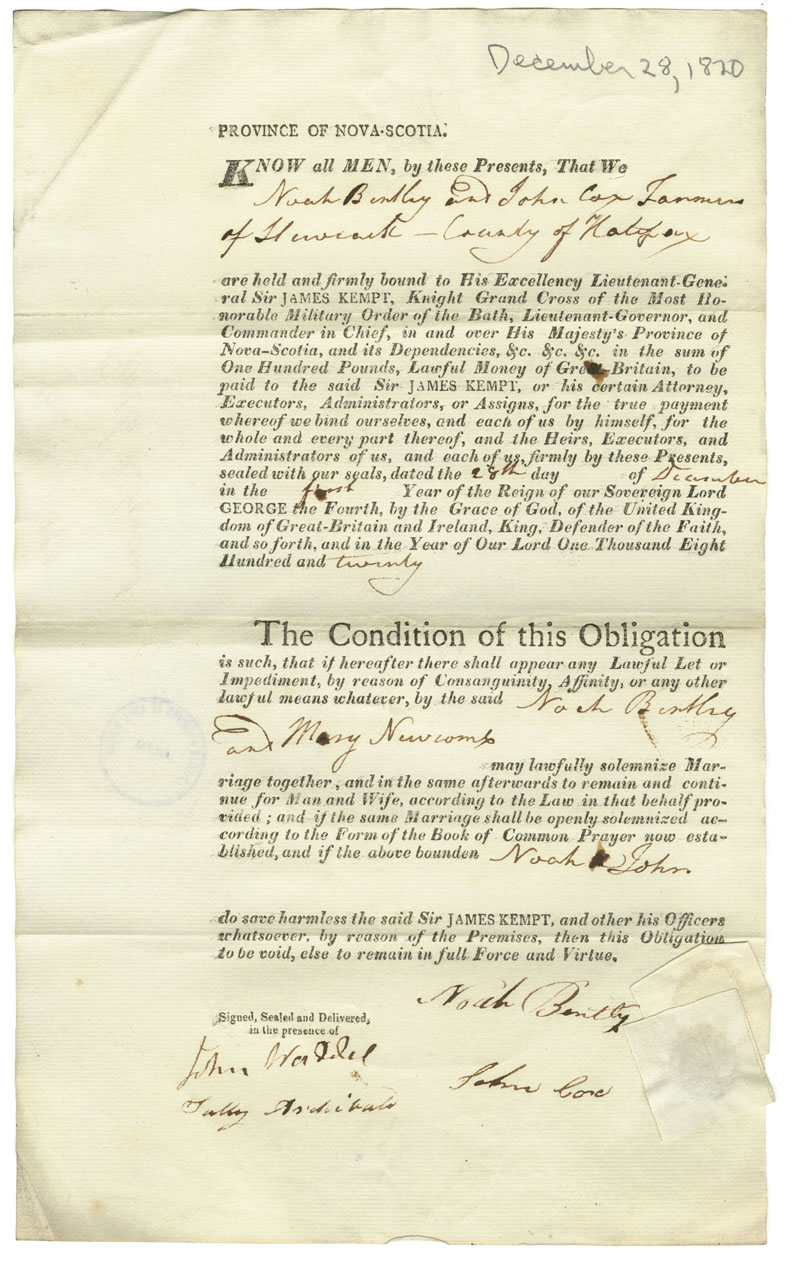 December 28, 1820
PROVINCE OF NOVA-SCOTIA.
KNOW all MEN, by these Presents, That We
Noah Bentley and John Cox Farmers
of Stewiack - County of Halifax
are held and firmly bound to His Excellency Lieutenant-Gene-
ral Sir JAMES KEMPT, Knight Grand Cross of the Most Ho-
norable Military Order of the Bath, Lieutenant-Governor, and
Commander in Chief, in and over His Majesty's Province of
Nova-Scotia, and its Dependencies, &c. &c. &c. in the sum of
One Hundred Pounds, Lawful Money of Great-Britain, to be
paid to the said Sir JAMES KEMPT, or his certain Attorney,
Executors, Administrators, or Assigns, for the true payment
whereof we bind ourselves, and each of us by himself, for the
whole and every part thereof, and the Heirs, Executors, and
Administrators of us, and each of us, firmly by these Presents,
sealed with our seals, dated the 28th day of December
in the first Year of the Reign of our Sovereign Lord
GEORGE the Fourth, by the Grace of God, of the United King-
dom of Great-Britain and Ireland, King, Defender of the Faith,
and so forth, and in the Year of Our Lord One Thousand Eight
Hundred and twenty
The Condition of this Obligation
is such, that if hereafter there shall appear any Lawful Let or
Impediment, by reason of Consanguinity, Affinity, or any other
lawful means whatever, by the said Noah Bentley
and Mary Newcomb
may lawfully solemnize Mar-
riage together, and in the same afterwards to remain and conti-
nue for Man and Wife, according to the Law in that behalf pro-
vided; and if the same Marriage shall be openly solemnized ac-
cording to the Form of the Book of Common Prayer now esta-
blished, and if the above bounden Noah & John
do save harmless the said Sir JAMES KEMPT, and other his Officers
whatsoever, by reason of the Premises, then this Obligation
to be void, else to remain in full Force and Virtue.
Noah Bentley
Signed, Sealed and Delivered,
in the presence of
John Waddel
John Cox
Tully Archibald